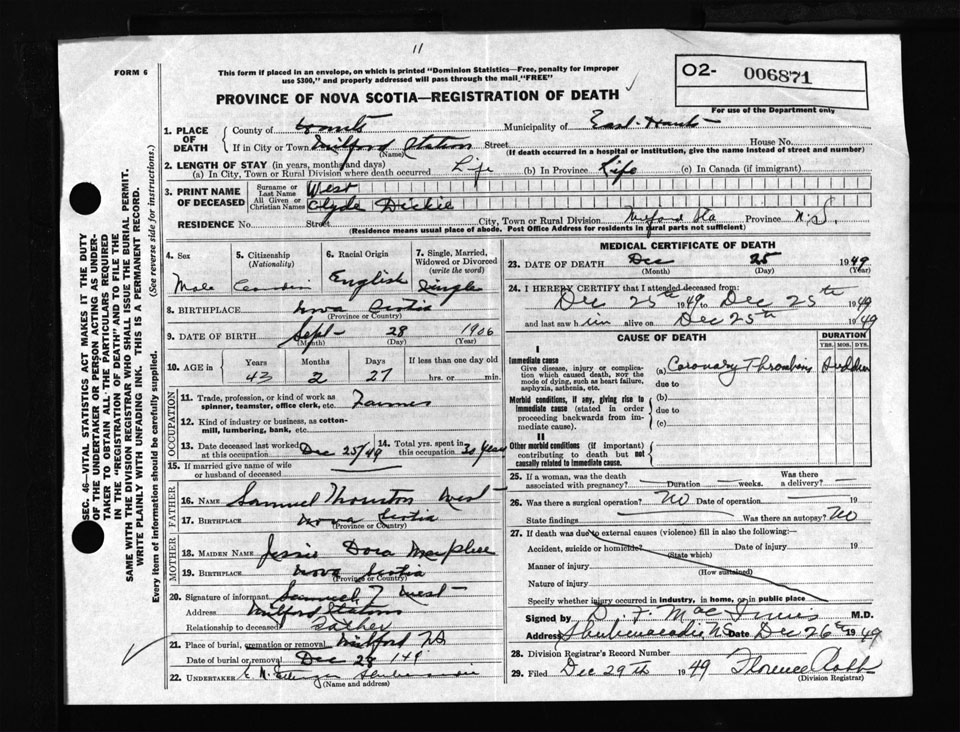 11
FORM 6
This form if placed in an envelope, on which is printed "Dominion Statistics—Free, penalty for improper
use $300," and properly addressed will pass through the mail "FREE"
O2- 006871
For use of the Department only
PROVINCE OF NOVA SCOTIA—REGISTRATION OF DEATH
1. PLACE OF DEATH
County of Hants Municipality of East-Hants
If in City or Town Milford Station Street House No.
(Name) (If death occurred in a hospital or institution, give the name instead of street and number)
2. LENGTH OF STAY (in years, months and days)
(a) In City, Town or Rural Division where death occurred Life (b) In Province Life (c) In Canada (if immigrant)
3. PRINT NAME OF DECEASED
Surname or Last Name West
All Given or Christian Names Clyde Dickie
RESIDENCE No. Street City, Town or Rural Division Milford Sta Province N.S.
(Residence means usual place of abode. Post Office Address for residents in rural parts not sufficient)
SEC. 46—VITAL STATISTICS ACT MAKES IT THE DUTY
OF THE UNDERTAKER OR PERSON ACTING AS UNDER-
TAKER TO OBTAIN ALL THE PARTICULARS REQUIRED
IN THE "REGISTRATION OF DEATH" AND TO FILE THE
SAME WITH THE DIVISION REGISTRAR WHO SHALL ISSUE THE BURIAL PERMIT.
WRITE PLAINLY WITH UNFADING INK. THIS IS A PERMANENT RECORD.
Every item of information should be carefully supplied. (See reverse side for instructions.)
4. Sex
Male
5. Citizenship
(Nationality)
Canadian
6. Racial Origin
English
7. Single, Married,
Widowed or Divorced
(write the word)
Single
8. BIRTHPLACE Nova Scotia
(Province or Country)
9. DATE OF BIRTH Sept- 28 1906
(Month) (Day) (Year)
10. AGE in Years Months Days If less than one day old
43 2 27 hrs. or min.
OCCUPATION
11. Trade, profession, or kind of work as
spinner, teamster, office clerk, etc. Farmer
12. Kind of industry or business, as cotton-
mill, lumbering, bank, etc.
13. Date deceased last worked
at this occupation Dec 25/49
14. Total yrs. spent in
this occupation 30 years
15. If married give name of wife
or husband of deceased
FATHER
16. NAME Samuel Thornton West
17. BIRTHPLACE Nova Scotia
(Province or Country)
MOTHER
18. MAIDEN NAME Jessie Dora Macphee
19. BIRTHPLACE Nova Scotia
(Province or Country)
20. Signature of informant Samuel T West
Address Milford Station
Relationship to deceased Father
21. Place of burial, cremation or removal Milford NS
Date of burial or removal Dec 28 149
22. UNDERTAKER Shubenacadie
(Name and address)
MEDICAL CERTIFICATE OF DEATH
23. DATE OF DEATH Dec 25 1949
(Month) (Day) (Year)
24. I HEREBY CERTIFY that I attended deceased from:
Dec 25th 1949 to Dec 25th 1949
and last saw him alive on Dec 25th 1949
CAUSE OF DEATH DURATION
YRS. MOS. DYS.
I
Immediate cause
Give disease, injury or complica-
tion which caused death, nor the
mode of dying, such as heart failure,
asphyxia, asthenia, etc.
(a) Coronary Thrombosis Sudden
due to
Morbid conditions, if any, giving rise to
immediate cause (stated in order
proceeding backwards from im-
mediate cause).
(b)
due to
(c)
II
Other morbid conditions (if important)
contributing to death but not
causally related to immediate cause.
25. If a woman, was the death
associated with pregnancy? Duration weeks. Was there
a delivery?
26. Was there a surgical operation? No Date of operation 19
State findings Was there an autopsy? No
27. If death was due to external causes (violence) fill in also the following:
Accident, suicide or homicide? Date of injury 19
(State which)
Manner of injury
(How sustained)
Nature of injury
Specify whether injury occurred in industry, in home, or in public place
Signed by D. F. MacInnis M.D.
Address Shubenacadie NS Date Dec 26th 1949
28. Division Registrar's Record Number
29. Filed Dec 29th 1949 Florence Robb
(Division Registrar)